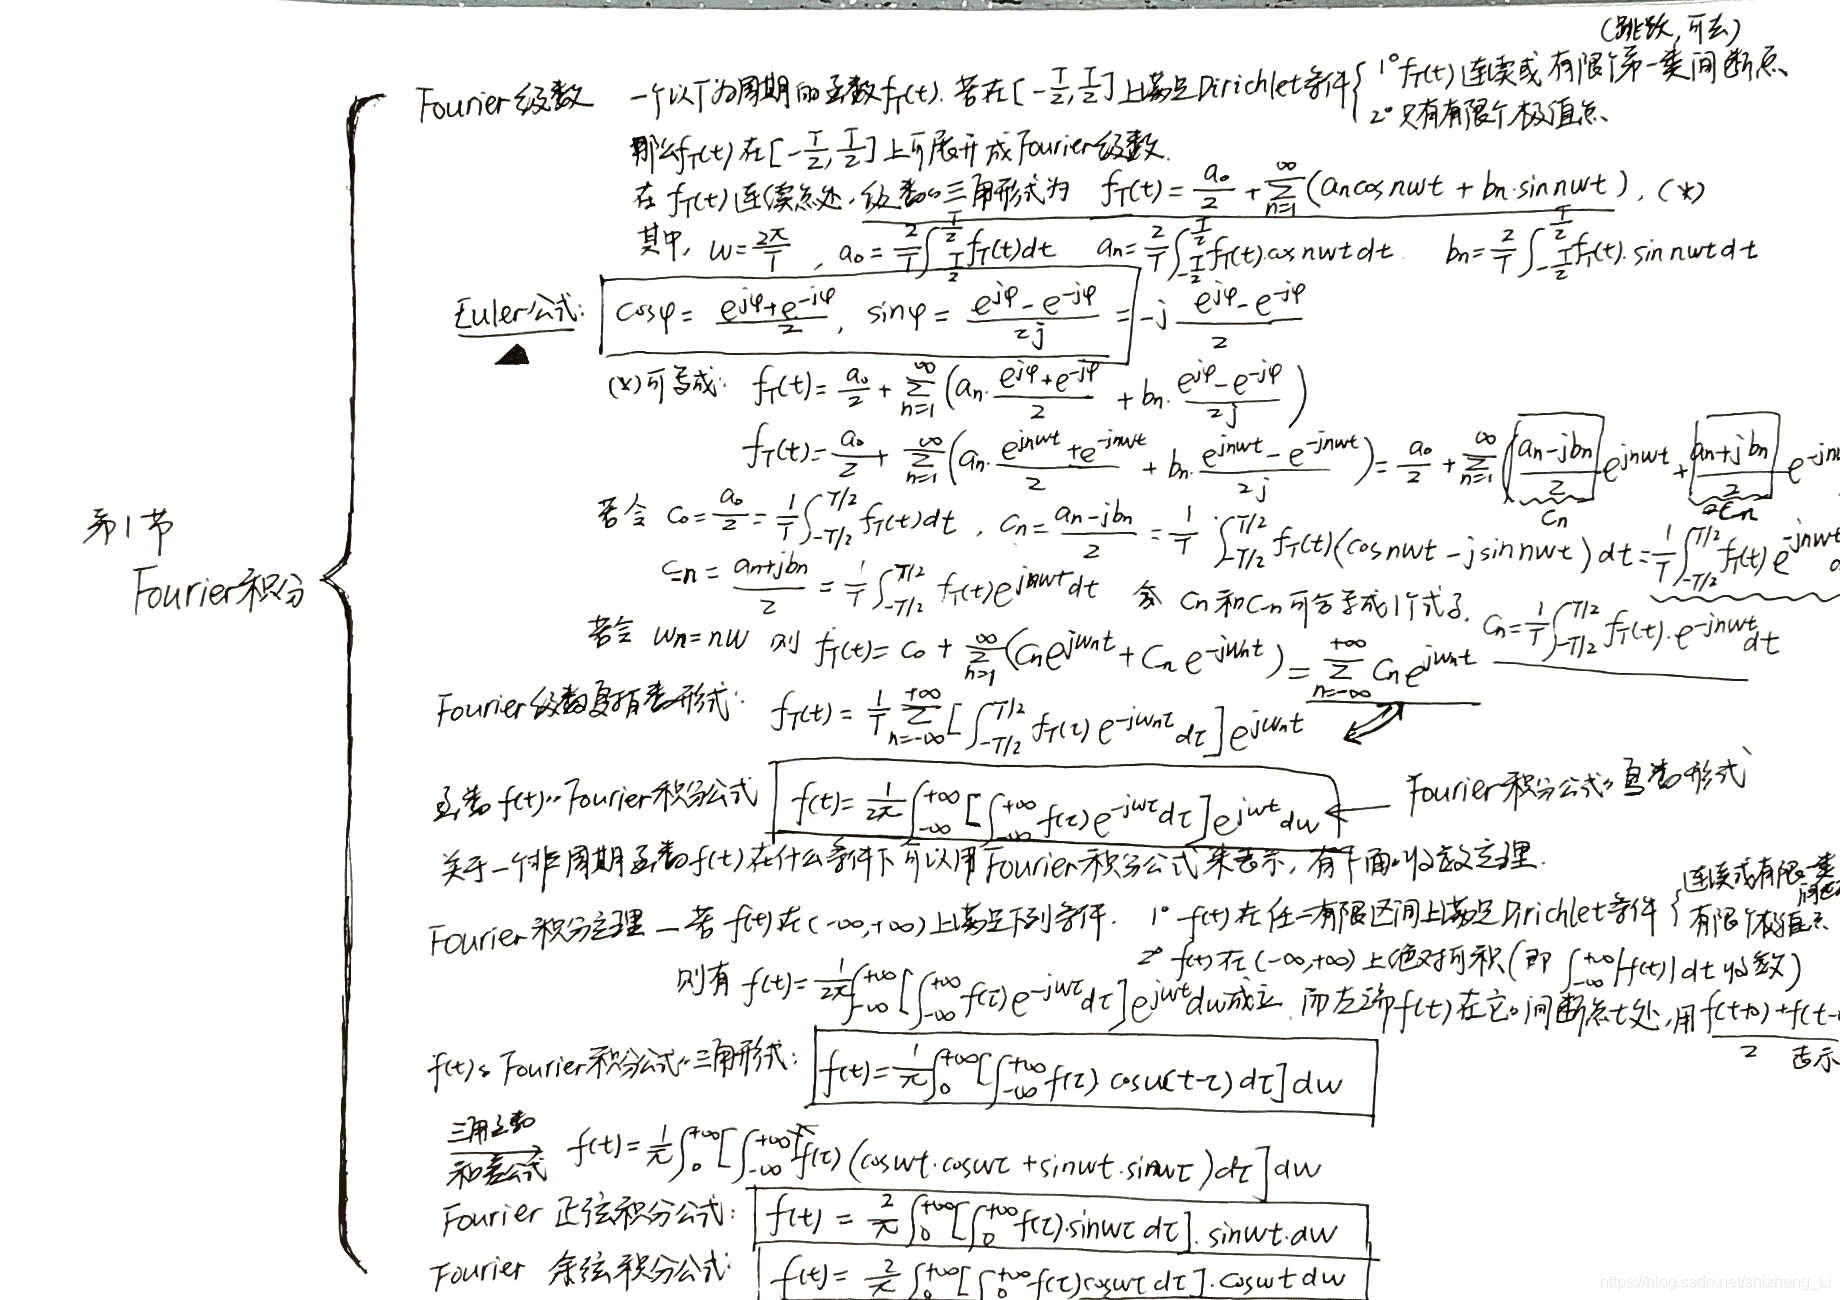 (跳跃,可去)
Fourier级数 一个以T为周期的函数f_T(t).若在[-T/2,T/2]上满足Dirichlet条件{1°f_T(t)连续或有限个第一类间断点
2°只有有限个极值点.
那么f_T(t)在[-T/2,T/2]上可展开成Fourier级数.
在f_T(t)连续点处,级数的三角形式为 f_T(t)=a₀/2+∑_{n=1}^{∞}(aₙcosnwt+bₙ·sinnwt),(*)
其中, w=2π/T, a₀=2/T∫_{-T/2}^{T/2}f_T(t)dt aₙ=2/T∫_{-T/2}^{T/2}f_T(t)·cosnwtdt. bₙ=2/T∫_{-T/2}^{T/2}f_T(t)·sinnwtdt
Euler公式: cosφ=(e^{jφ}+e^{-jφ})/2, sinφ=(e^{jφ}-e^{-jφ})/2j=-j(e^{jφ}-e^{-jφ})/2
(*)可写成: f_T(t)=a₀/2+∑_{n=1}^{∞}(aₙ·(e^{jφ}+e^{-jφ})/2+bₙ·(e^{jφ}-e^{-jφ})/2j)
f_T(t)=a₀/2+∑_{n=1}^{∞}(aₙ·(e^{jnwt}+e^{-jnwt})/2+bₙ·(e^{jnwt}-e^{-jnwt})/2j)=a₀/2+∑_{n=1}^{∞}((aₙ-jbₙ)/2 e^{jnwt}+(aₙ+jbₙ)/2 e^{-jn
Cₙ
若令 C₀=a₀/2=1/T∫_{-T/2}^{T/2}f_T(t)dt, Cₙ=(aₙ-jbₙ)/2=1/T∫_{-T/2}^{T/2}f_T(t)(cosnwt-jsinnwt)dt=1/T∫_{-T/2}^{T/2}f_T(t)e^{-jnwt}
第1节
Fourier积分
C₋ₙ=(aₙ+jbₙ)/2=1/T∫_{-T/2}^{T/2}f_T(t)e^{jnwt}dt Cₙ和C₋ₙ可合写成1个式子. Cₙ=1/T∫_{-T/2}^{T/2}f_T(t)·e^{-jnwt}dt
若令 wₙ=nw 则 f_T(t)=C₀+∑_{n=1}^{∞}(Cₙe^{jwₙt}+C₋ₙe^{-jwₙt})=∑_{n=-∞}^{+∞}Cₙe^{jwₙt}
Fourier级数复指数形式: f_T(t)=1/T∑_{n=-∞}^{+∞}[∫_{-T/2}^{T/2}f_T(τ)e^{-jwₙτ}dτ]e^{jwₙt}
函数f(t)的Fourier积分公式 f(t)=1/2π∫_{-∞}^{+∞}[∫_{-∞}^{+∞}f(τ)e^{-jwτ}dτ]e^{jwt}dw ← Fourier积分公式的复数形式
关于一个非周期函数f(t)在什么条件下可以用Fourier积分公式来表示,有下面的收敛定理.
Fourier积分定理 — 若f(t)在(-∞,+∞)上满足下列条件. 1° f(t)在任一有限区间上满足Dirichlet条件{连续或有限个一类间断
有限个极值点
2° f(t)在(-∞,+∞)上绝对可积(即∫_{-∞}^{+∞}|f(t)|dt收敛)
则有 f(t)=1/2π∫_{-∞}^{+∞}[∫_{-∞}^{+∞}f(τ)e^{-jwτ}dτ]e^{jwt}dw成立 而左端f(t)在它的间断点t处,用(f(t+0)+f(t-/2表示
f(t)的Fourier积分公式的三角形式: f(t)=1/π∫_{0}^{+∞}[∫_{-∞}^{+∞}f(τ)cosw(t-τ)dτ]dw
三角函数
和差公式 f(t)=1/π∫_{0}^{+∞}[∫_{-∞}^{+∞}f(τ)(coswt·coswτ+sinwt·sinwτ)dτ]dw
Fourier 正弦积分公式: f(t)=2/π∫_{0}^{+∞}[∫_{0}^{+∞}f(τ)·sinwτdτ]·sinwt·dw
Fourier 余弦积分公式: f(t)=2/π∫_{0}^{+∞}[∫_{0}^{+∞}f(τ)coswτdτ]·coswtdw
https://blog.csdn.net/shizheng_Li